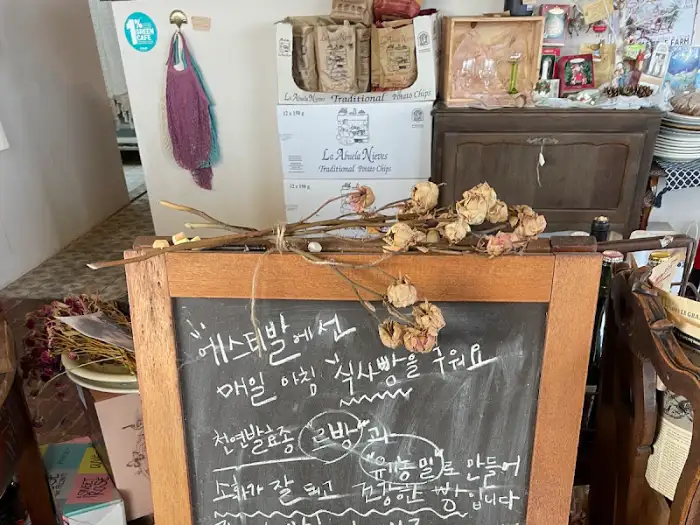 1%
GREEN
CAFE
12 x 150 g
La Abuela Nieves
Traditional Potato Chips
12 x 150 g
La Abuela Nieves
Traditional Potato Chips
"에스티발에선
매일 아침 "식사빵을 구워요
천연발효종 "르방"과
"유기농 밀"로 만들어
소화가 잘 되고 건강한 빵입니다